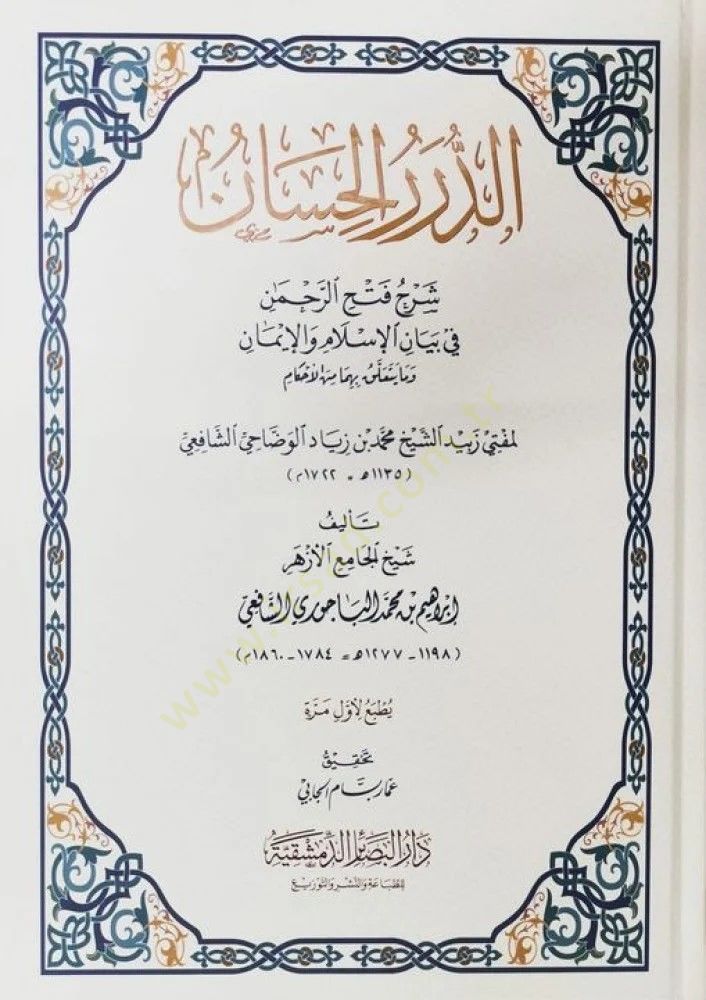 الدُّرَرُ الحِسَانُ
شَرْحُ فَتْحِ الرَّحْمٰنِ
فِي بَيَانِ الإِسْلَامِ وَالإِيمَانِ
وَمَا يَتَعَلَّقُ بِهِمَا مِنَ الأَحْكَامِ
لمفتي زَبيد الشَّيخ محمَّد بن زياد الوَضَاحيّ الشَّافعيّ
(١١٣٥هـ = ١٧٢٢م)
تَأليفُ
شَيْخِ الجَامِعِ الأَزْهَرِ
إبراهيم بن محمد الباجوري الشافعي
(١١٩٨ - ١٢٧٧هـ = ١٧٨٤ - ١٨٦٠م)
يُطْبَعُ لِأَوَّلِ مَرَّةٍ
تحقيقُ
عمار بسام الجابي
دَارُ البَصَائِر الدِّمَشْقِيَّة
للطباعة والنشر والتوزيع